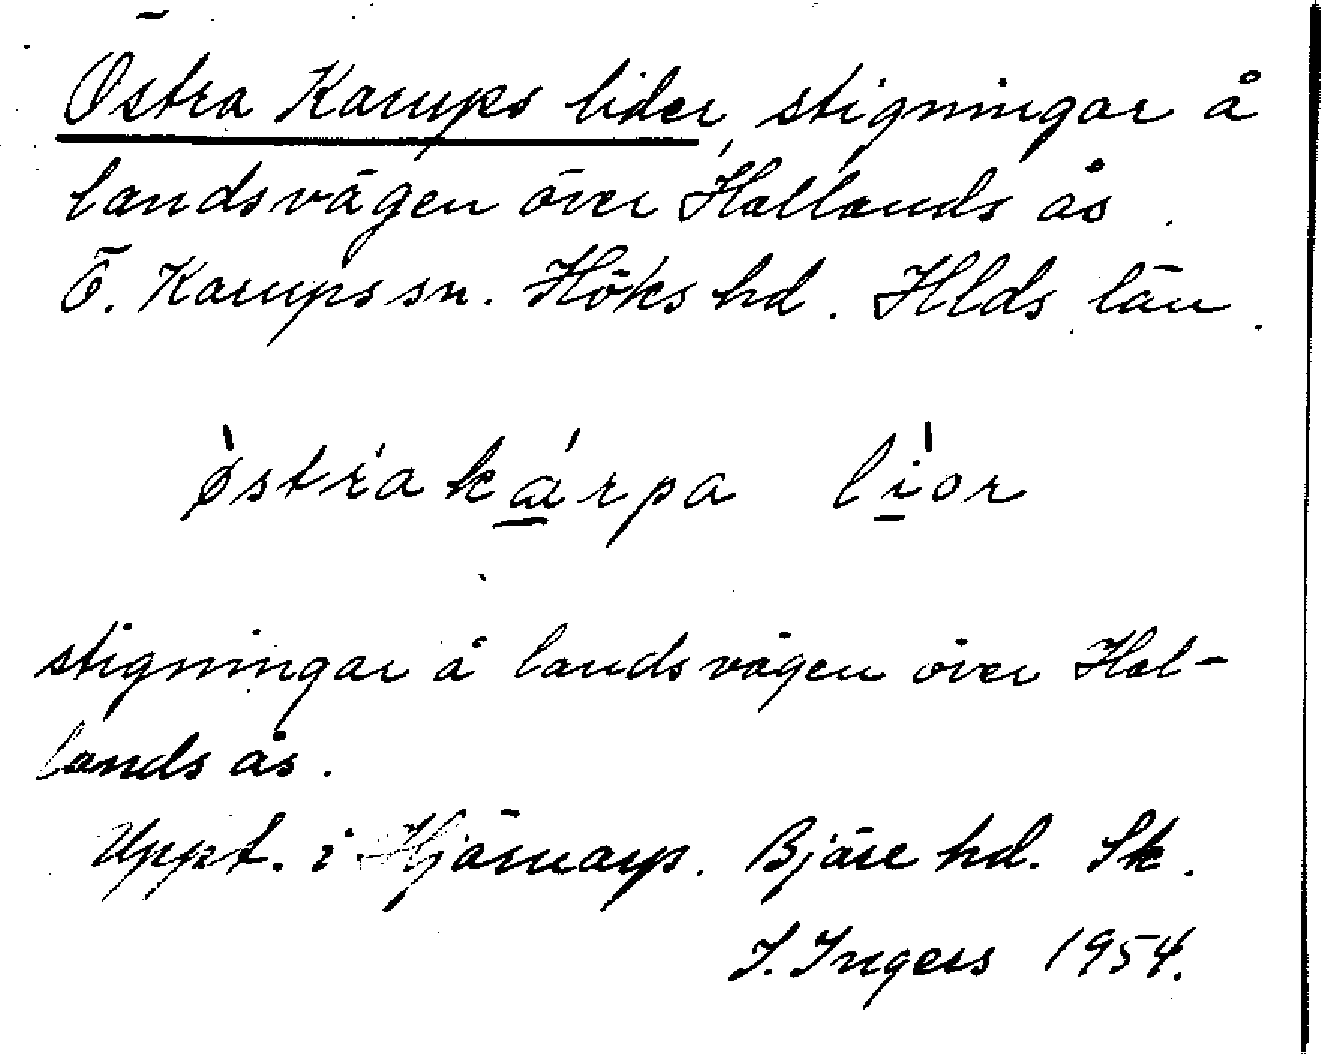 Östra Karups lider, stigningar å
landsvägen över Hallands ås.
Ö. Karups sn. Höks hd. Hlds län.
östra kárpa lior
stigningar å landsvägen över Hal-
lands ås.
Uppt. i Hjärnarp. Bjäre hd. Sk.
I. Ingers 1954.